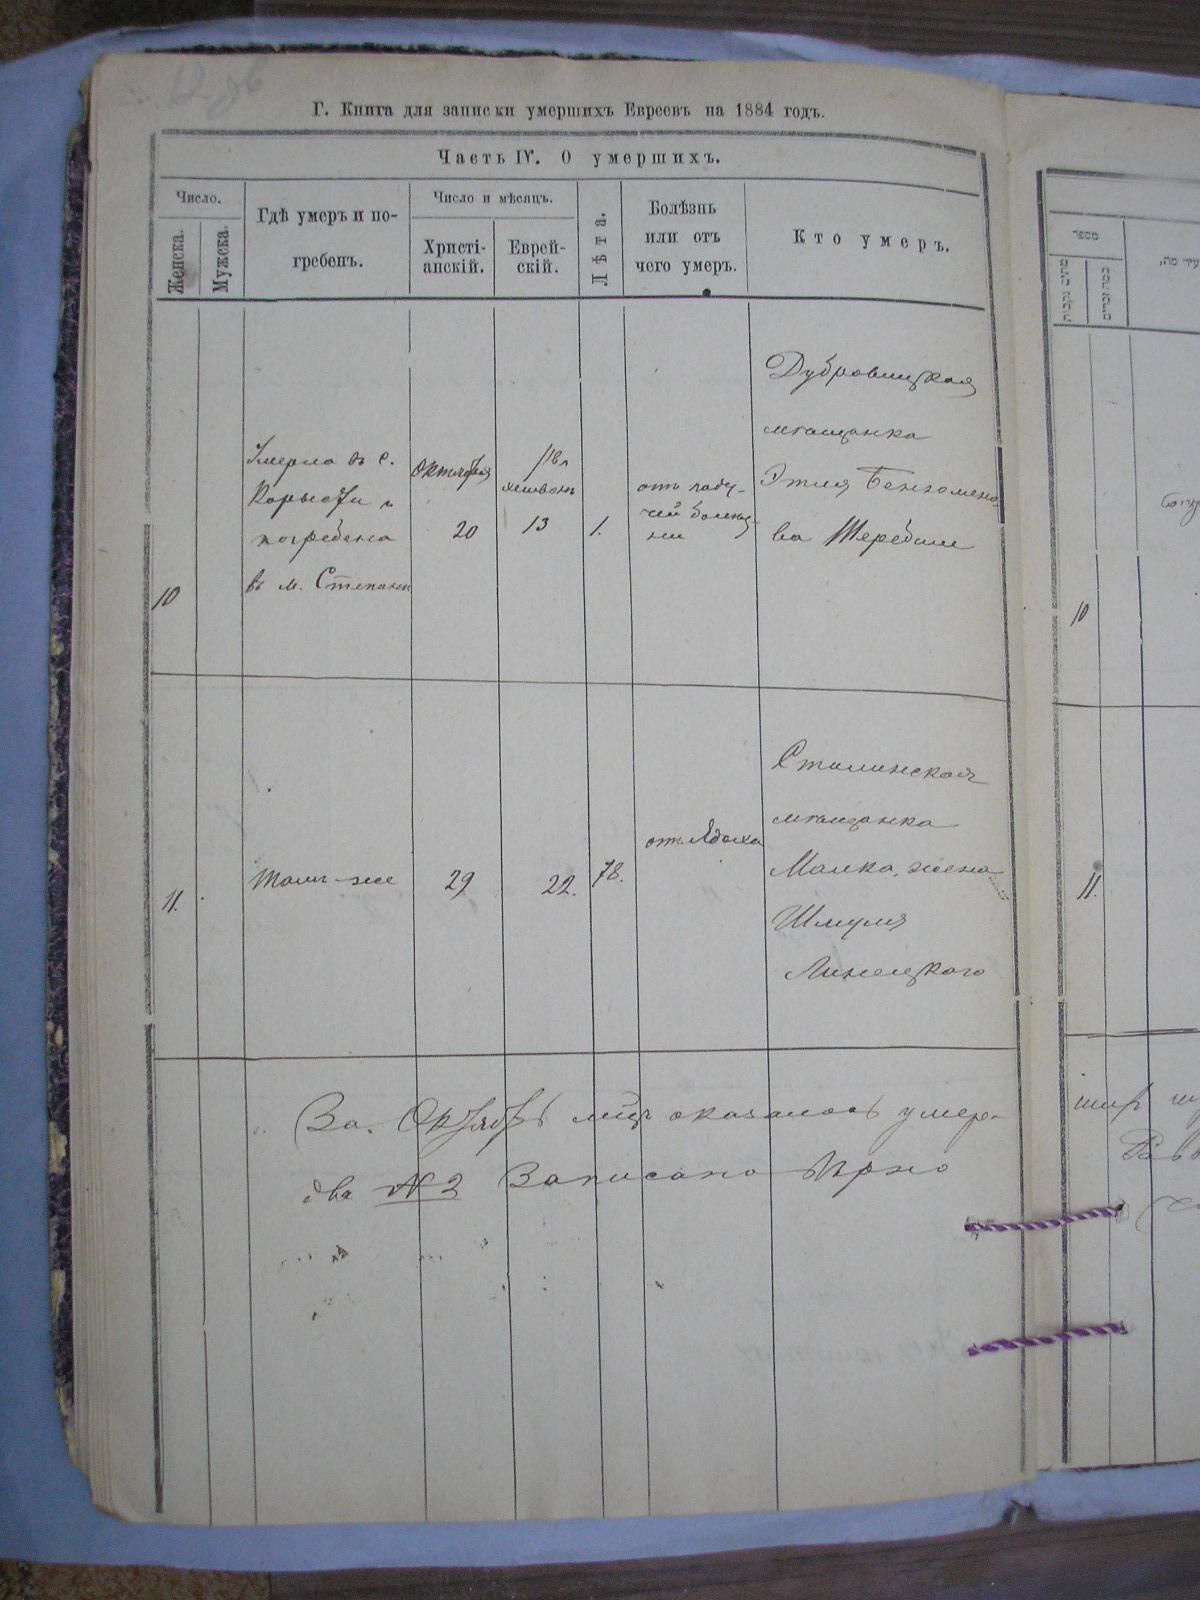 Г. Книга для записки умершихъ Евреевъ на 1884 годъ.
Часть IV. О умершихъ.
Число.
Женска.
Мужска.
Гдѣ умеръ и по-
гребенъ.
Число и мѣсяцъ.
Христі-
анскій.
Еврей-
скій.
Лѣта.
Болѣзнь
или отъ
чего умеръ.
Кто умеръ.
10
Умерла въ с.
Корысти и
погребена
въ м. Степани
Октября
20
хешвонъ
13
1.
отъ паду-
чей болез-
ни
Дубровицкая
мѣщанка
Этля Бенюмено
ва Теребило
11.
Тамъ-же
29
22.
78.
Столинская
мѣщанка
Малка, жена
Шмуля
Линецкого
За Октябрь мцъ оказалось умер-
два № 2 Записано Вѣрно
מספר
10
11.